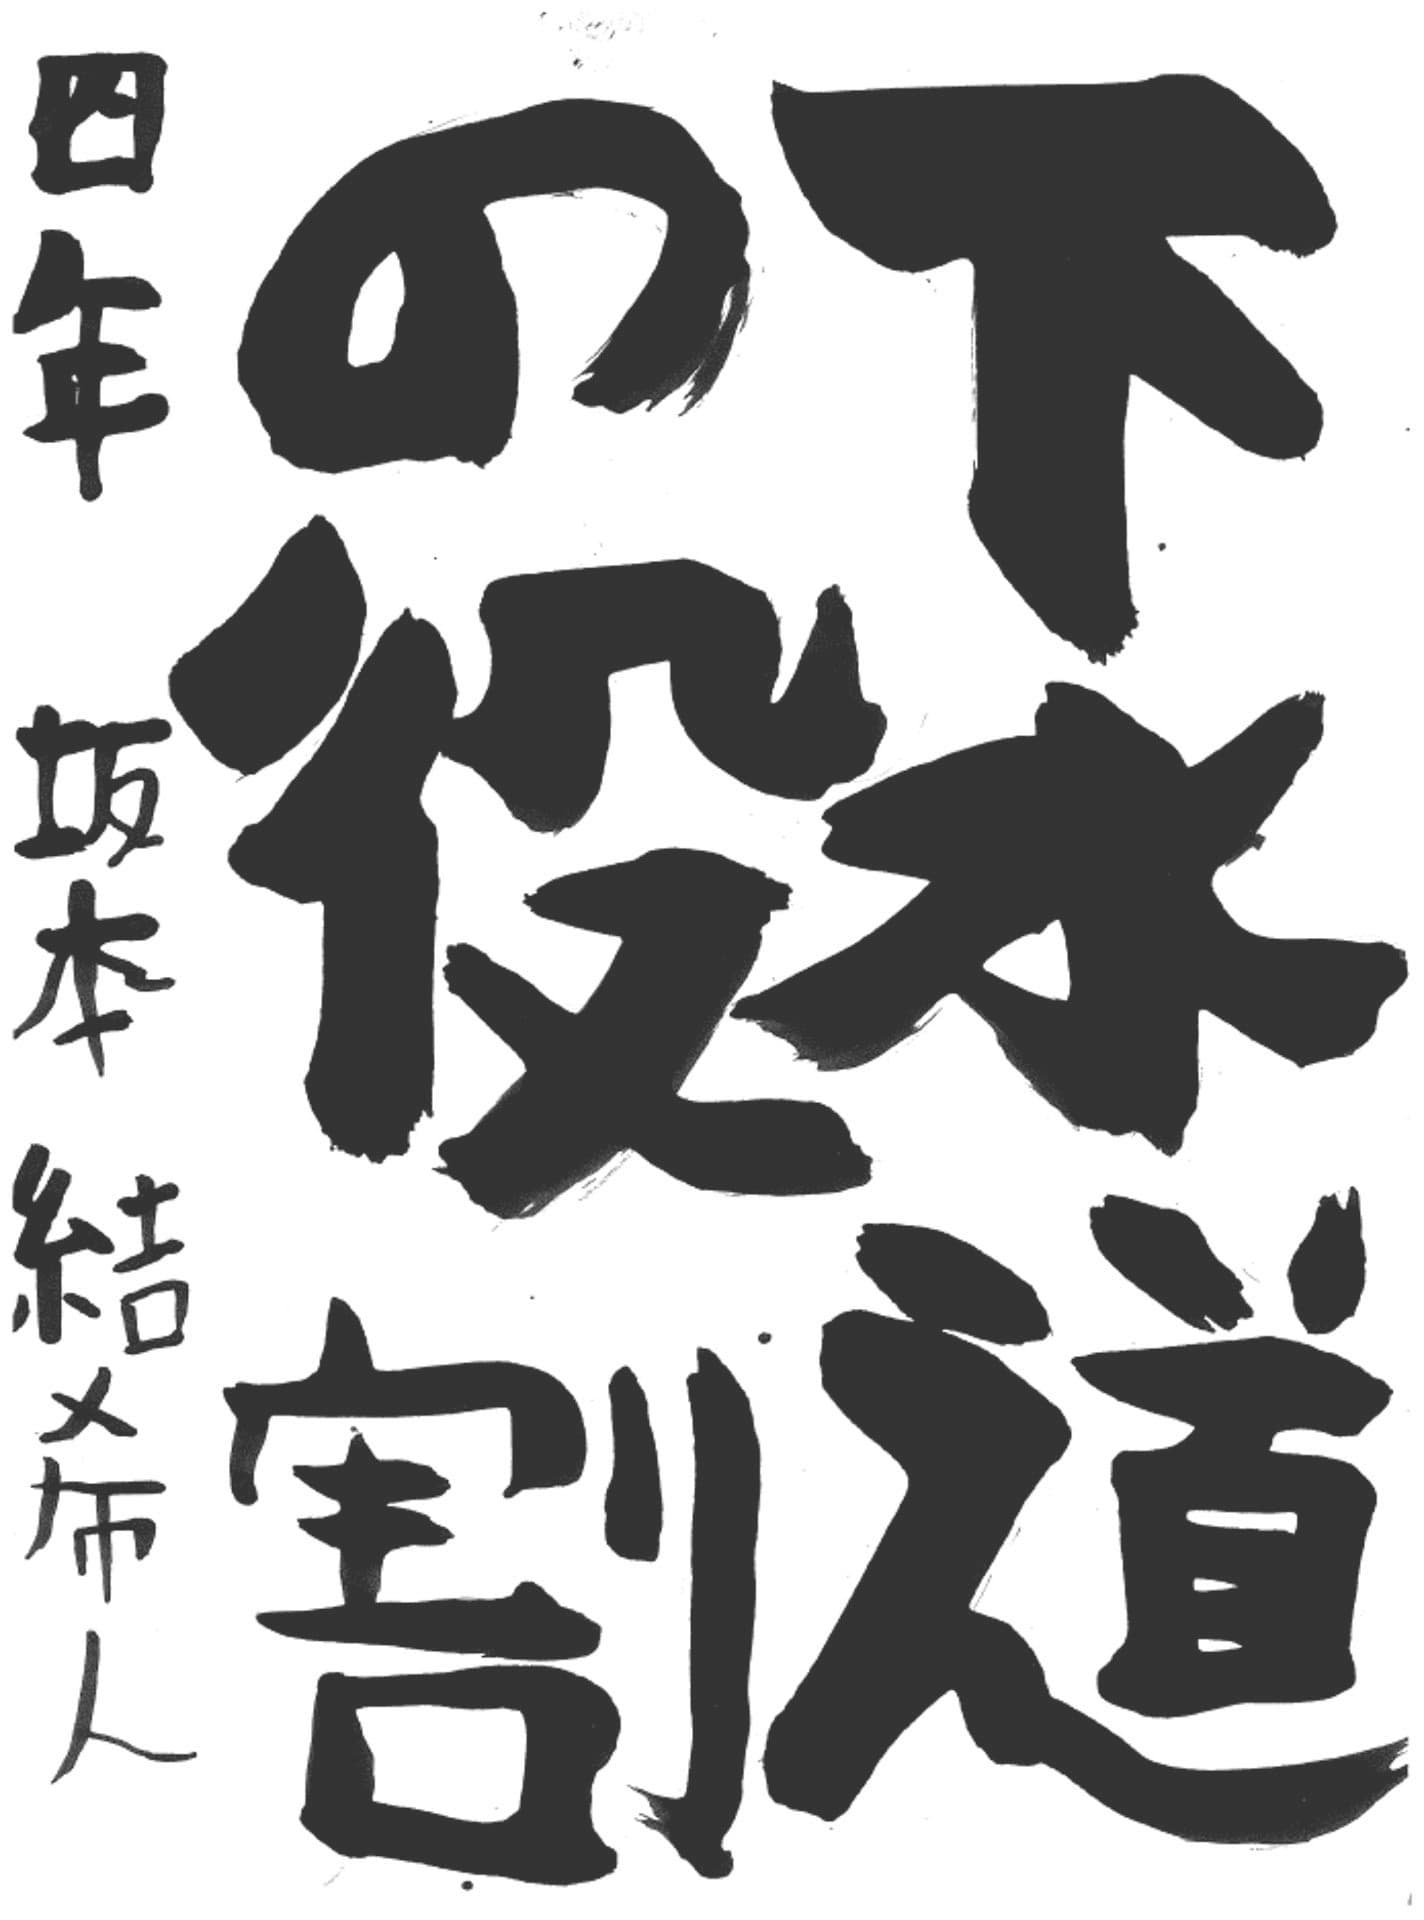 下水道
の役割
四年 坂本 結希人